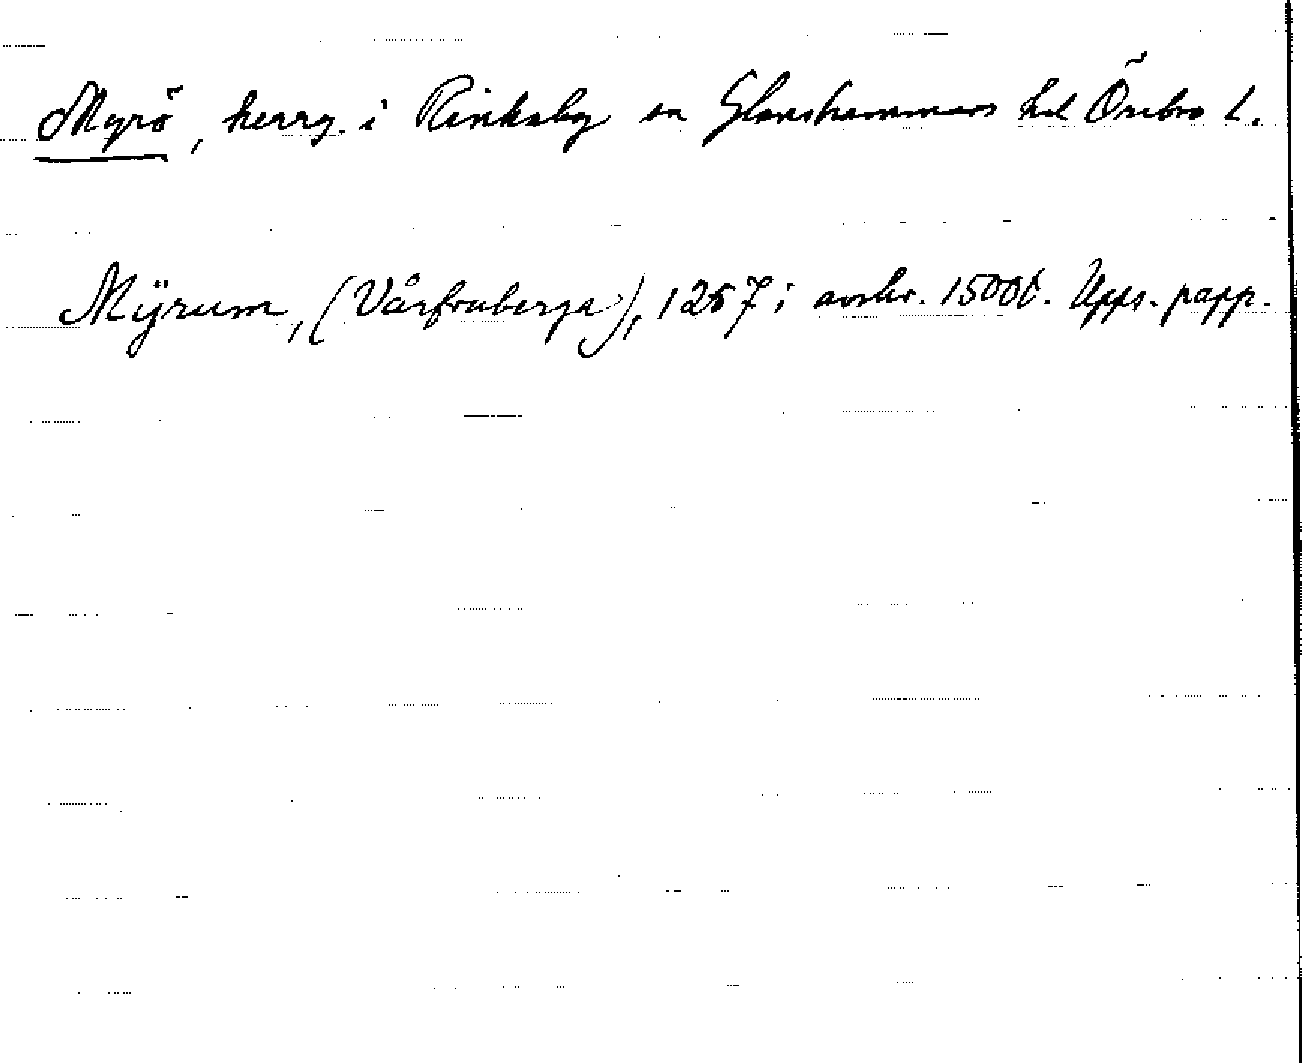 Myrö, herrg. i Rinkaby sn Glanshammars hd Örebro L.
Mÿrum, (Vårfruberga), 1257 i avskr. 1500t. Upps. papp.